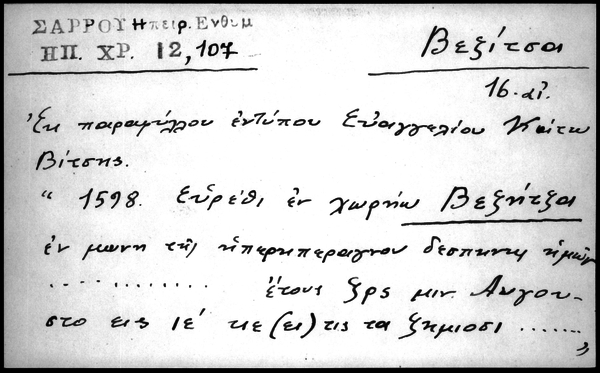 ΣΑΡΡΟΥ Ηπειρ. Ενθυμ
ΗΠ. ΧΡ. 12, 107
Βεζίτσα
16. αἰ.
Ἐκ παραφύλλου ἐντύπου Εὐαγγελίου Κάτω
Βίτσης.
“ 1598. Εὑρέθι ἐν χωρήω Βεζήτζα
ἐν μωνη τῆς ἡπερηπεραγνου δεσπηνης ἡμῶν
.............. ἔτους ζρς μιν. Αυγου-
στο εις ιε΄ κε (ει) τις τα ζημιοσι .......
”